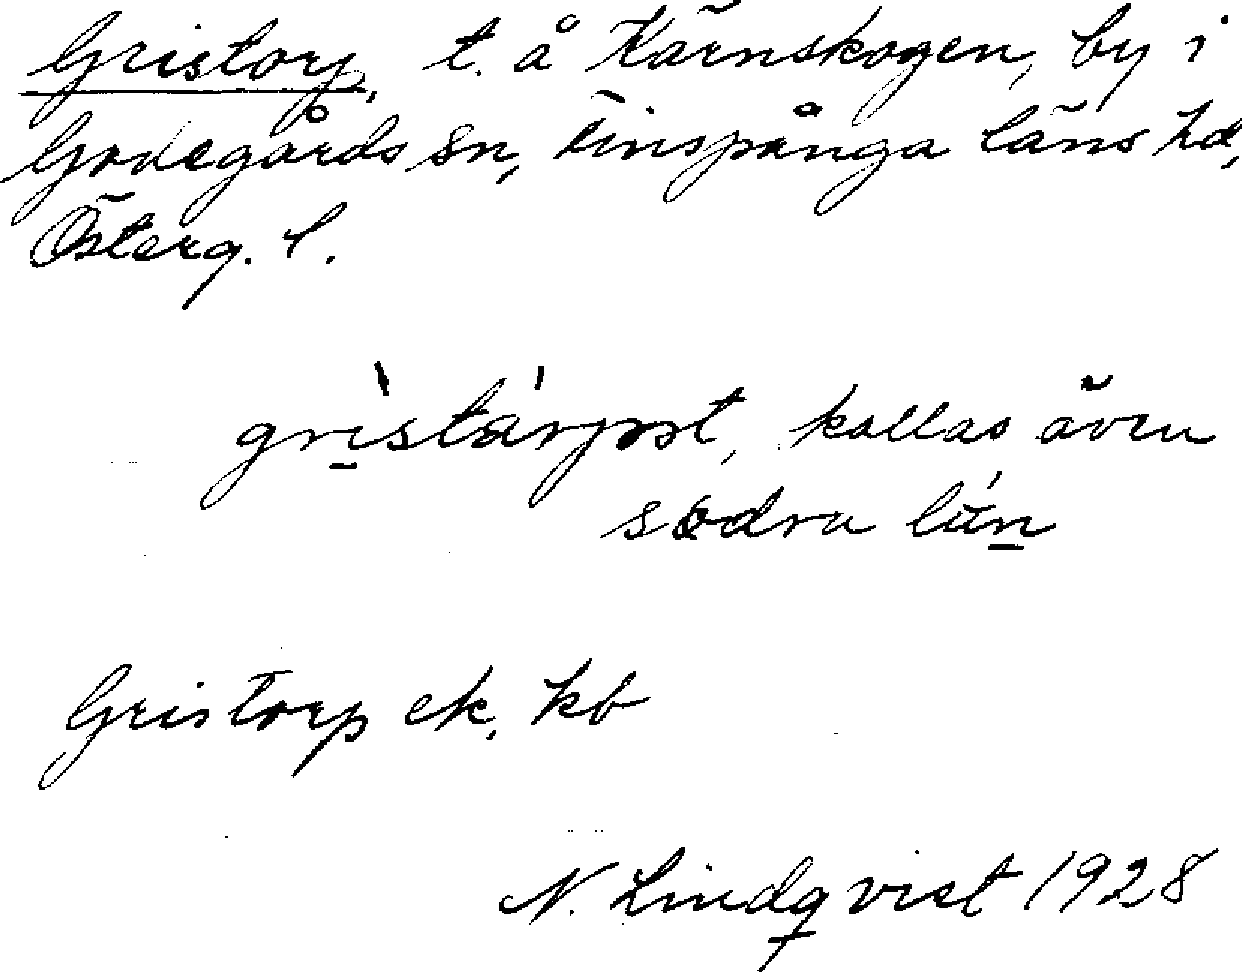 Gristorp, t. å Kärnskogen, by i
Godegårds sn, Finspånga läns hd,
Österg. l.
gristàrpət, kallas även
södra lún
Gristorp ek, kb
N. Lindqvist 1928